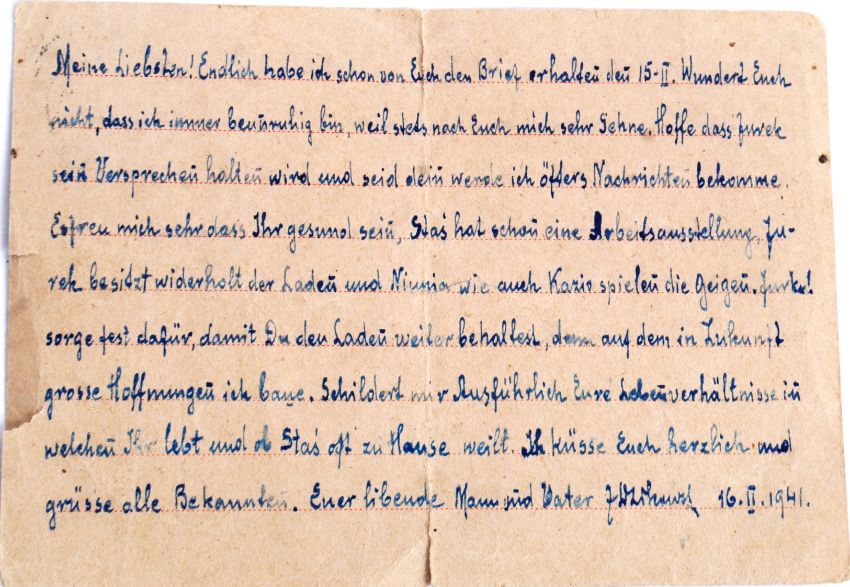 Meine Liebsten! Endlich habe ich schon von Euch den Brief erhalten den 15-II. Wundert Euch
nicht, dass ich immer beunruhig bin, weil stets nach Euch mich sehr Sehne. Hoffe dass Jurek
sein Versprechen halten wird und seid dein werde ich öffers Nachrichten bekomme.
Esfreu mich sehr dass Ihr gesund sein, Staś hat schon eine Arbeitsausstellung, Ju-
rek besitzt widerholt der Laden und Niunia wie auch Kazio spielen die Geigen. Jurku!
sorge fest dafür, damit Du den Laden weiter behaltest, denn auf dem in Zukunft
grosse Hoffnungen ich baue. Schildert mir Ausführlich Eure Lebenverhältnisse in
welchen Ihr lebt und ob Staś oft zu Hause weilt. Ich küsse Euch herzlich und
grüsse alle Bekannten. Euer libende Mann und Vater 16.II.1941.